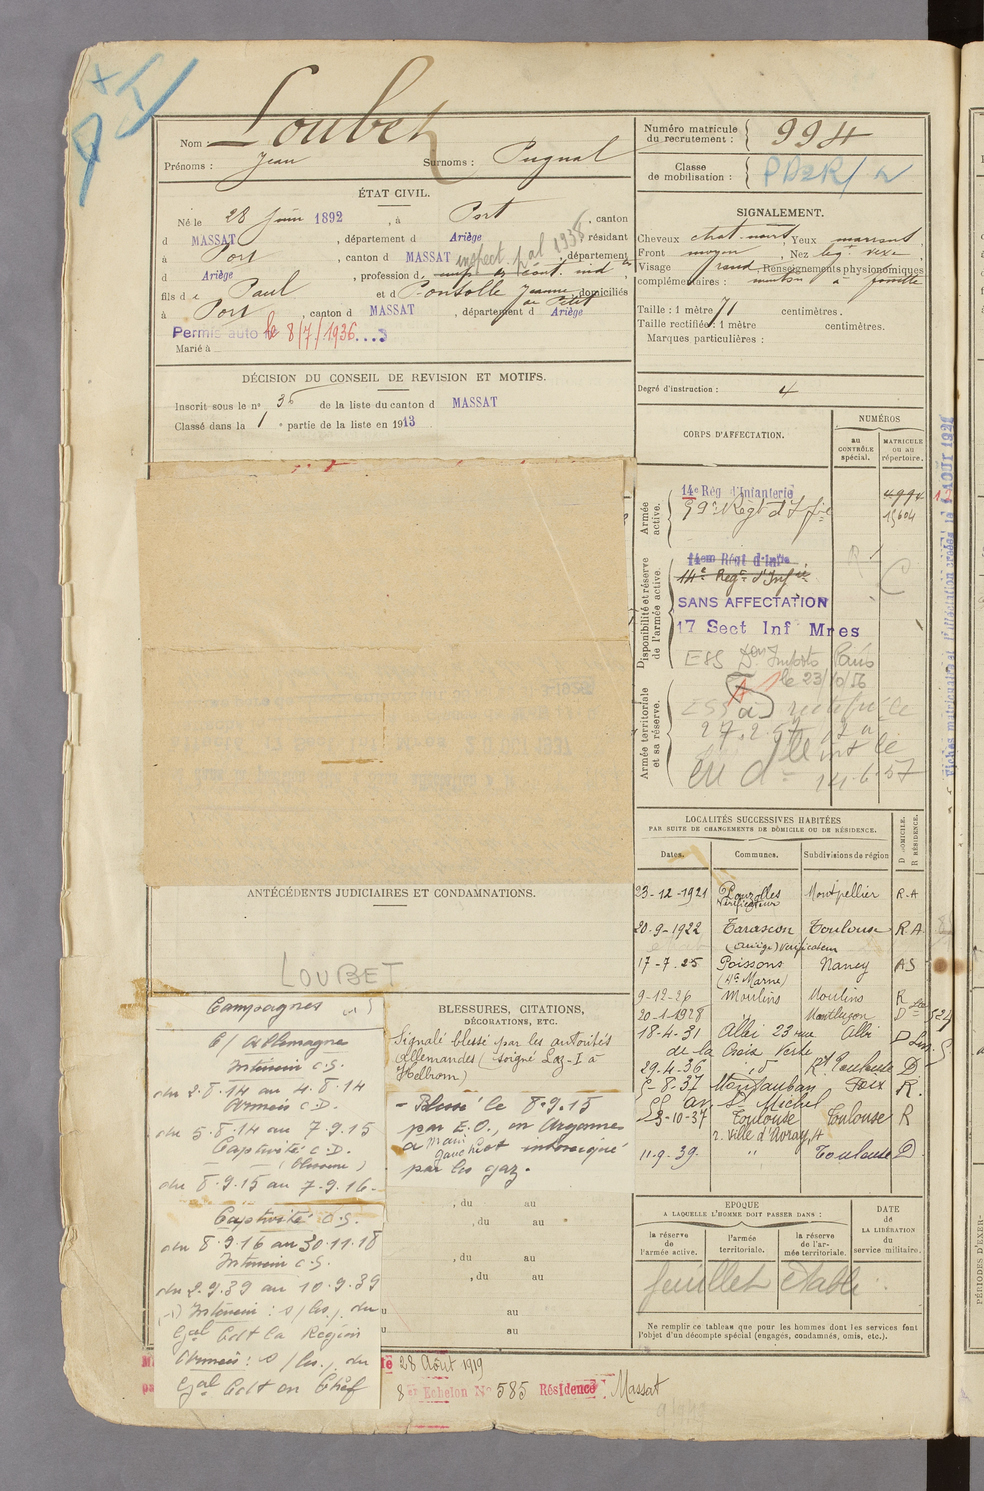 Nom : Loubet
Prénoms : Jean Surnoms : Pugnal
ÉTAT CIVIL.
Né le 28 Juin 1892, à Port, canton
d MASSAT, département d Ariège résidant
à Port, canton d MASSAT inspect. pal 1938, département
d Ariège, profession d
fils d e Paul et d Pontolle Jeanne domiciliés
à Port, canton d MASSAT, département d Ariège
Permis auto le 8/7/1936
Marié à
DÉCISION DU CONSEIL DE REVISION ET MOTIFS.
Inscrit sous le n° 36 de la liste du canton d MASSAT
Classé dans la 1e partie de la liste en 1913
ANTÉCÉDENTS JUDICIAIRES ET CONDAMNATIONS.
LOUBET
Campagnes (1)
C/ Allemagne
Intérieur C.S.
du 2.8.14 au 4.8.14
Armées C.D.
du 5.8.14 au 7.9.15
Captivité C.D.
(blessure)
du 8.9.15 au 7.9.16
Captivité C.S.
du 8.9.16 au 30.11.18
Intérieur C.S.
du 2.9.39 au 10.9.39
(1) Intérieur : s/ les, du
Gal Cdt la Région
Armées : s/ les, du
Gal Cdt en Chef
BLESSURES, CITATIONS,
DÉCORATIONS, ETC.
Signalé blessé par les autorités
Allemandes (soigné Laz-I à
Heilbron)
- Blessé le 8.9.15
par E.O., en Argonne
à main
gauche et intoxiqué
par les gaz.
, du au
, du au
, du au
, du au
au
au
le 28 Août 1919
8er Echelon N° 585 Résidence : Massat
Numéro matricule
du recrutement : 994
Classe
de mobilisation :
SIGNALEMENT.
Cheveux chat. noirs, Yeux marrons,
Front moyen, Nez lég. vexe,
Visage rond, Renseignements physionomiques
complémentaires : menton à fossette
Taille : 1 mètre 71 centimètres.
Taille rectifiée : 1 mètre centimètres.
Marques particulières :
Degré d'instruction : 4
CORPS D'AFFECTATION.
NUMÉROS
au
CONTRÔLE
spécial.
MATRICULE
ou au
répertoire.
Armée
active.
14e Rég d'Infanterie 4994
59e Régt d'Infie 15604
Disponibilité et réserve
de l'armée active.
14eme Régt d'Infie
14e Regt d'Infie
SANS AFFECTATION
17 Sect Inf Mres
ESS Don Impots Paris
le 23/10/56
Armée territoriale
et sa réserve.
27.2.57
14.6.57
Fiches matricule et d'affectation créées le 1 AOUT 192
LOCALITÉS SUCCESSIVES HABITÉES
PAR SUITE DE CHANGEMENTS DE DOMICILE OU DE RÉSIDENCE.
Dates. Communes. Subdivisions de région
D DOMICILE.
R RÉSIDENCE.
23-12-1921 Pouzolles Montpellier R.A
Vérificateur
20-9-1922 Tarascon Toulouse R.A
(Ariège) Vérificateur
17-7-25 Poissons Nancy AS
(Hte Marne)
9-12-26 Moulins Moulins R
20-1-1928 " Montluçon D
18-4-31 Albi 23 rue Albi D
de la Croix Verte
29-4-36 id Rt Toulouse D
5-8-37 Montauban Foix R.
55 av. St Michel
23-10-37 Toulouse Toulouse R
2. Ville d'Avray, 4
11-9-39. " Toulouse D
ÉPOQUE
A LAQUELLE L'HOMME DOIT PASSER DANS :
la réserve
de
l'armée active.
l'armée
territoriale.
la réserve
de l'ar-
mée territoriale.
DATE
de
LA LIBÉRATION
du
service militaire.
feuillet établi
Ne remplir ce tableau que pour les hommes dont les services font
l'objet d'un décompte spécial (engagés, condamnés, omis, etc.).
PÉRIODES D'EXER-